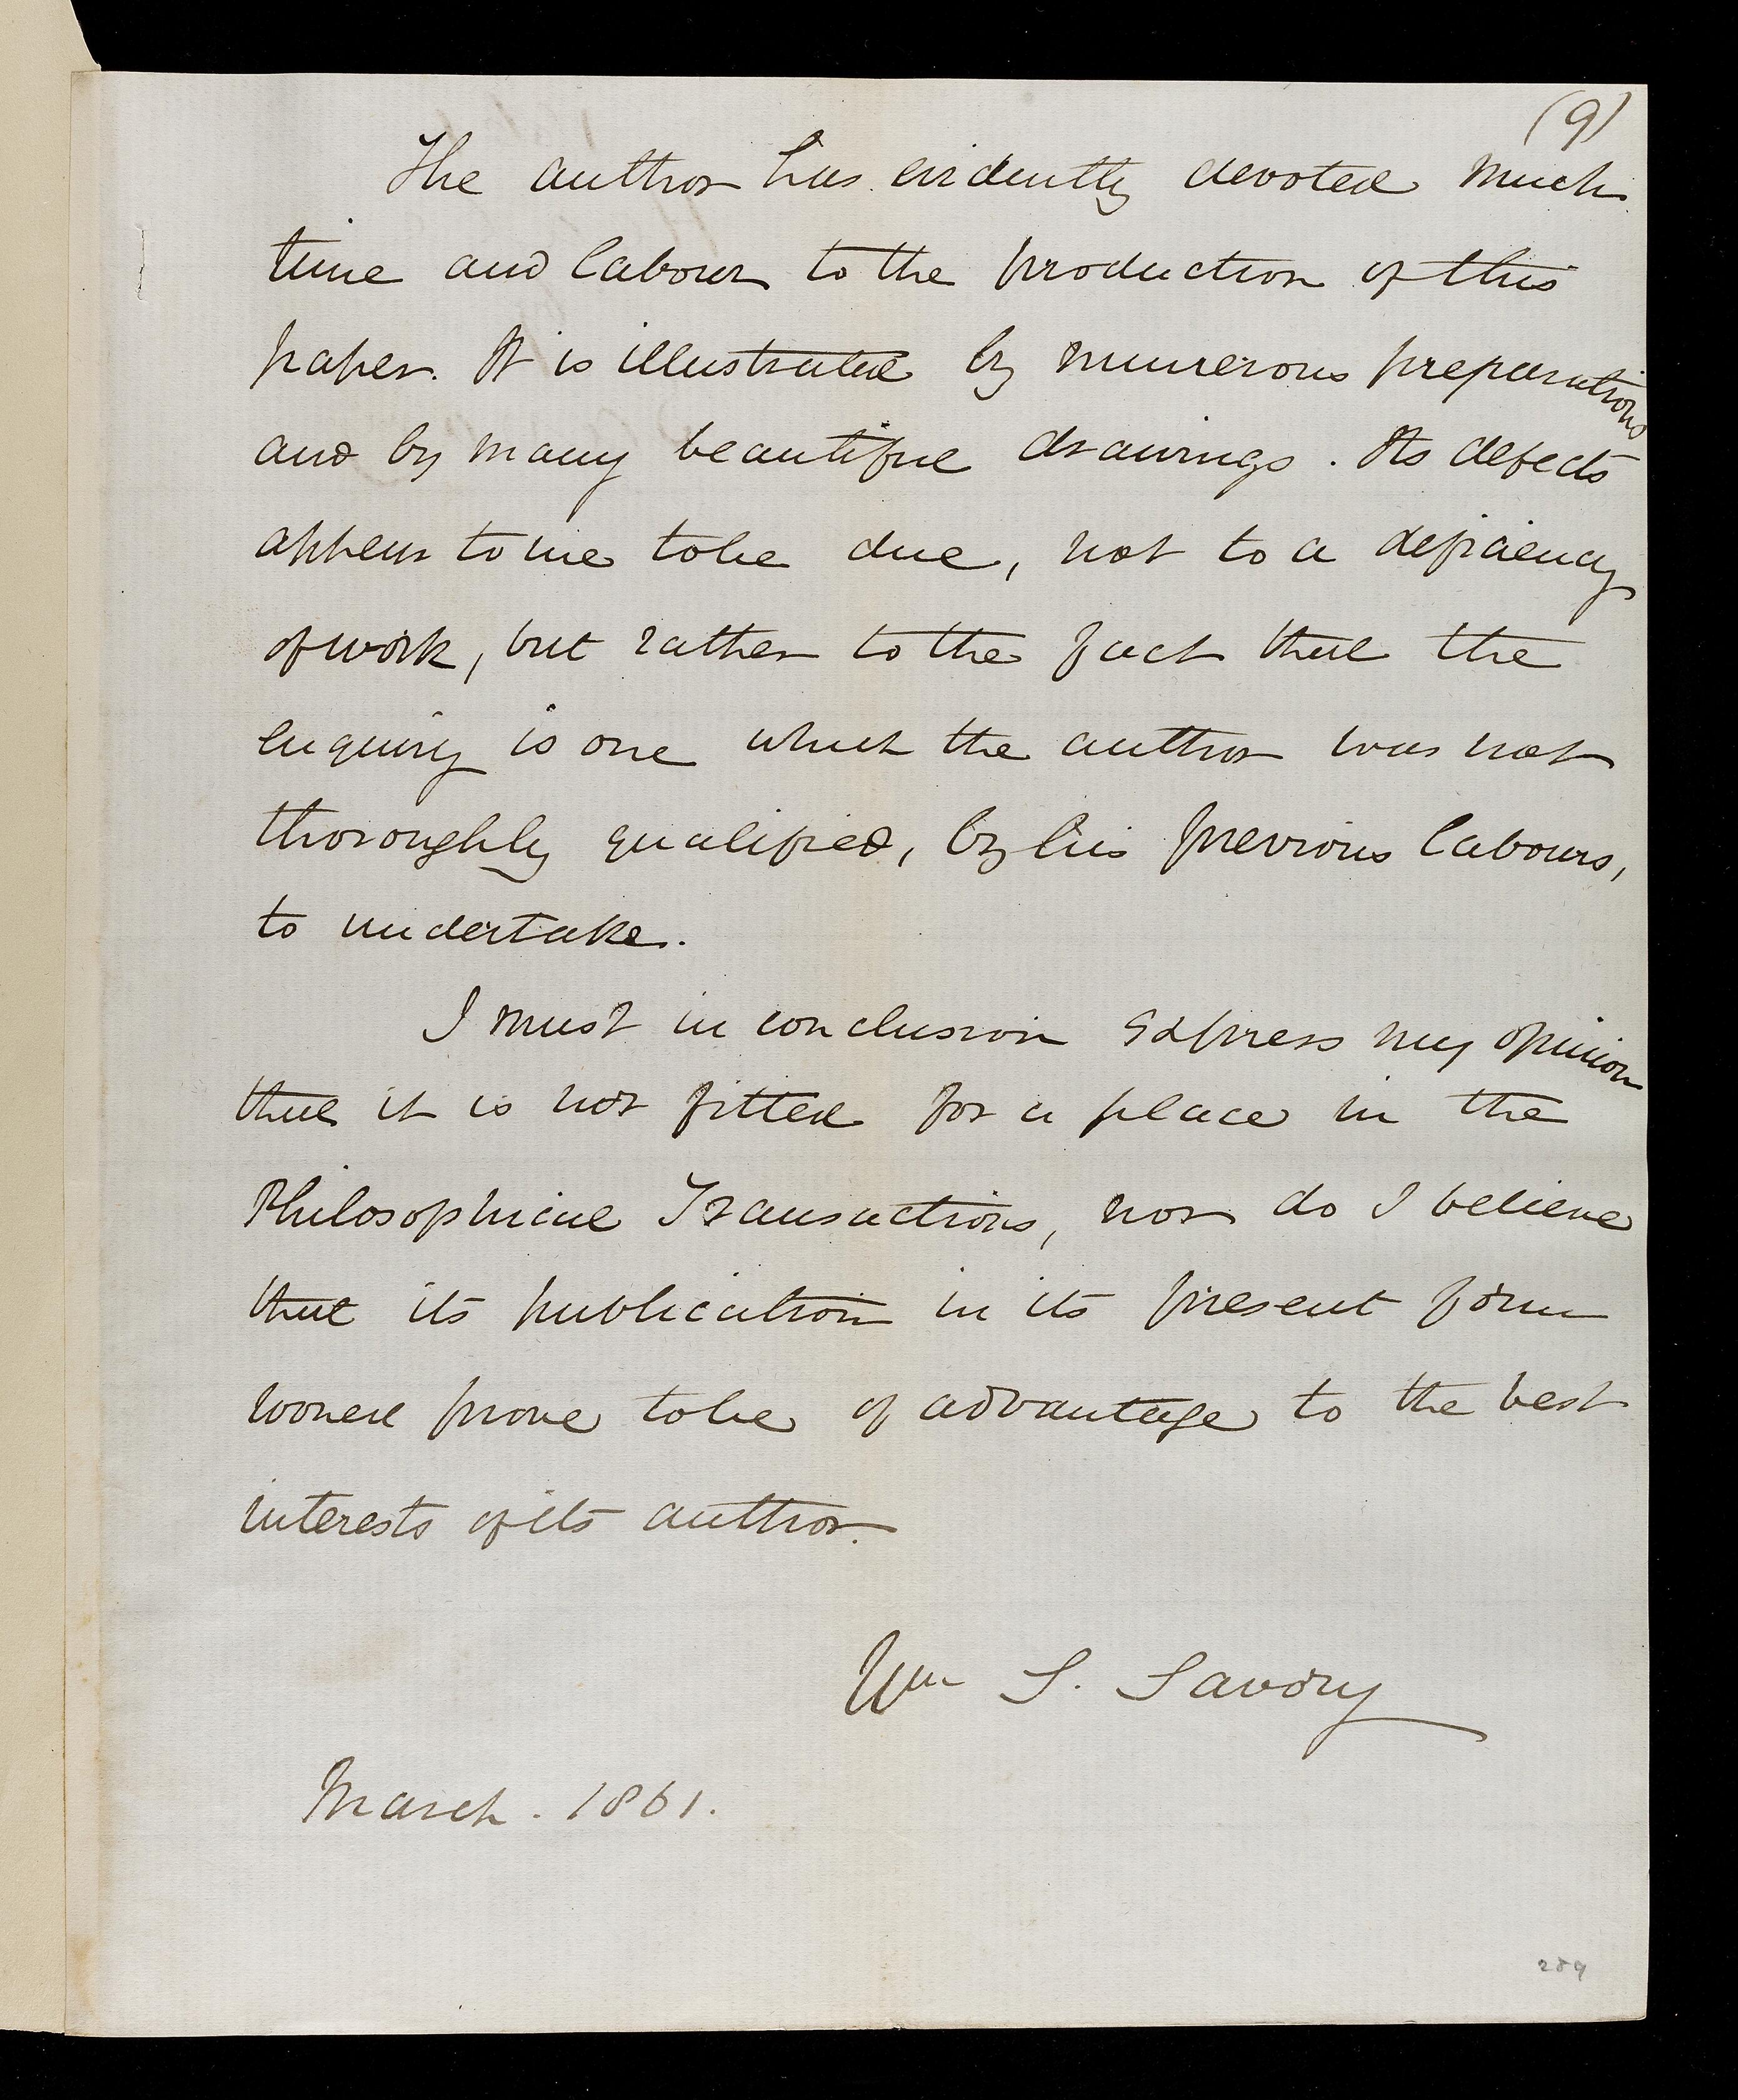 (9)
The author has evidently devoted much
time and labour to the production of this
paper. It is illustrated by numerous preparations
and by many beautiful drawings. Its defects
appear to me to be due, not to a deficiency
of work, but rather to the fact that the
enquiry is one which the author was not
thoroughly qualified, by his previous labours,
to undertake.
I must in conclusion express my opinion
that it is not fitted for a place in the
Philosophical Transactions, nor do I believe
that its publication in its present form
would prove to be of advantage to the best
interests of its author.
Wm S. Savory
March. 1861.
289